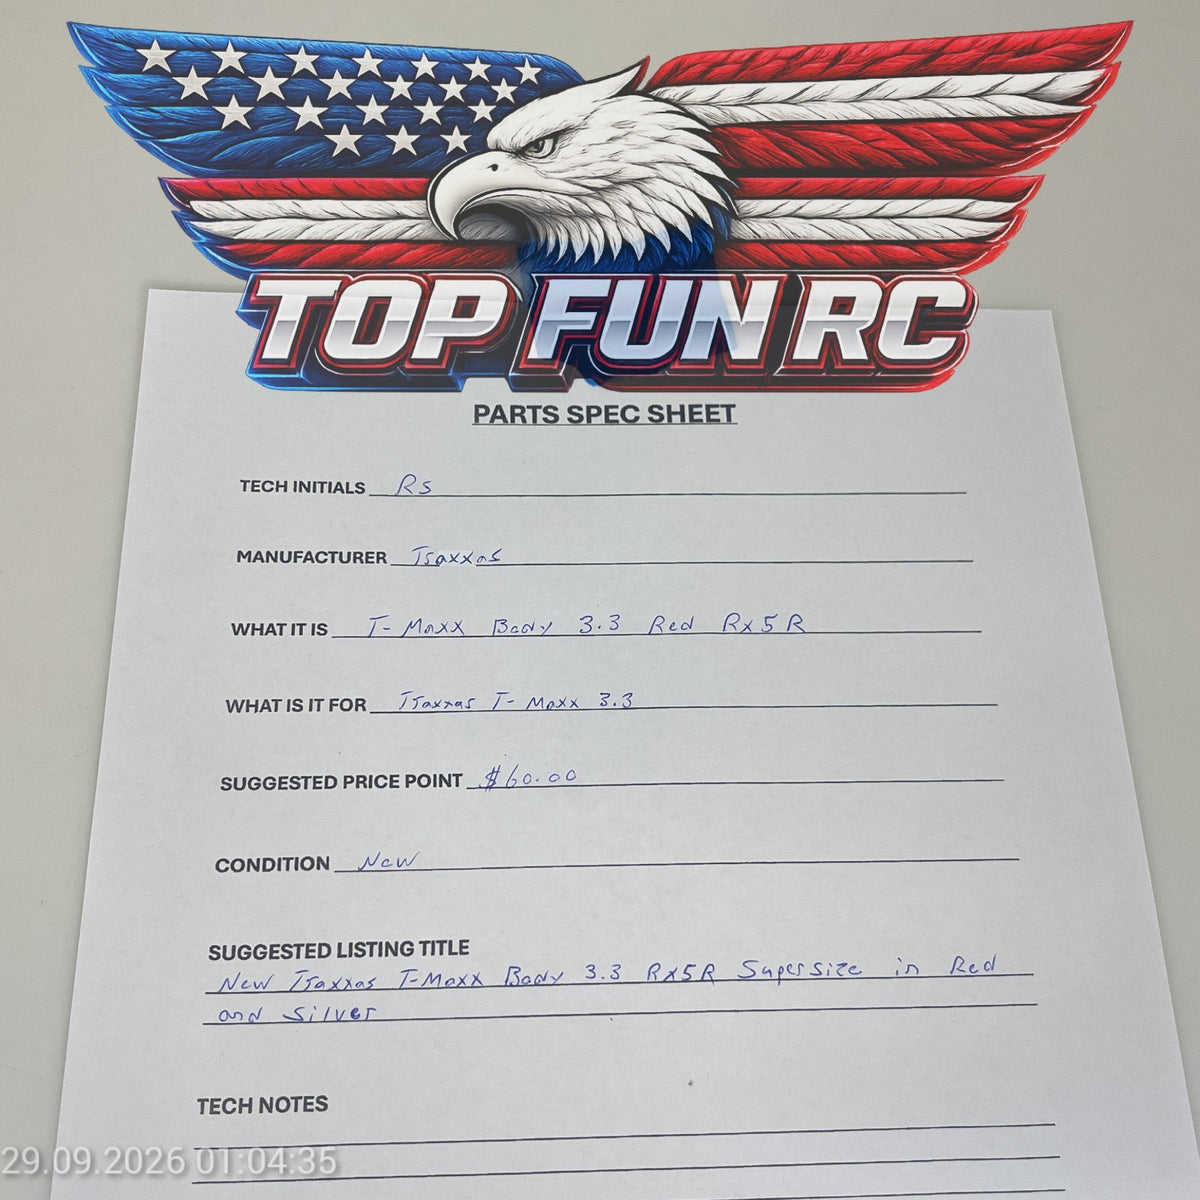 TOP FUN RC
PARTS SPEC SHEET
TECH INITIALS RS
MANUFACTURER Traxxas
WHAT IT IS T-Maxx Body 3.3 Red Rx5R
WHAT IS IT FOR Traxxas T-Maxx 3.3
SUGGESTED PRICE POINT $60.00
CONDITION New
SUGGESTED LISTING TITLE
New Traxxas T-Maxx Body 3.3 Rx5R Supersize in Red
and Silver
TECH NOTES
29.09.2026 01:04:35